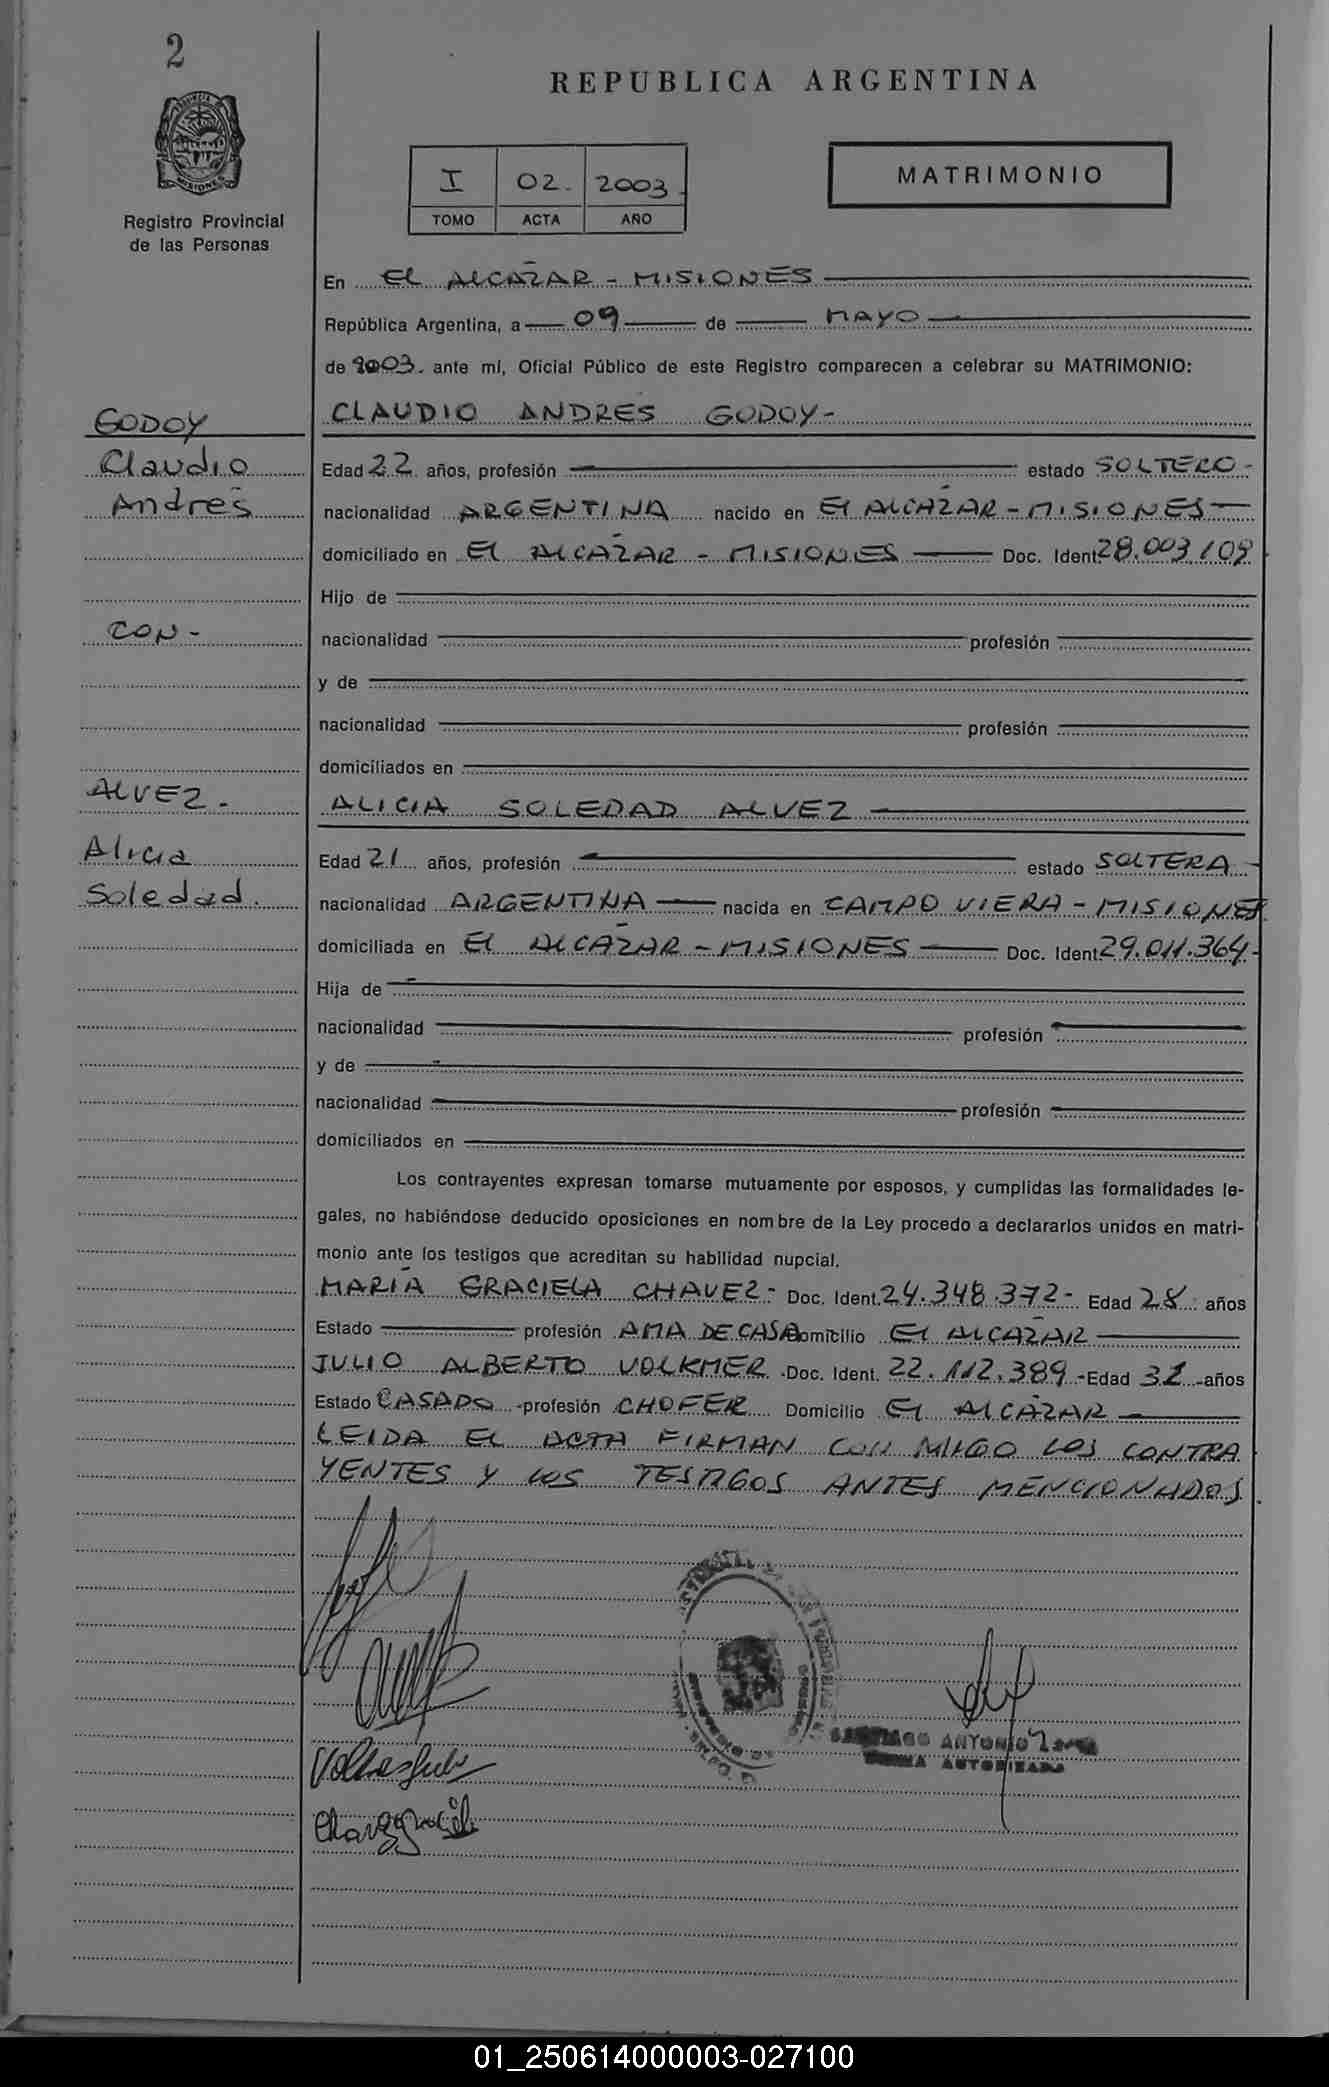 2
REPUBLICA ARGENTINA
PROVINCIA DE
MISIONES
Registro Provincial
de las Personas
I 02. 2003.
TOMO ACTA AÑO
MATRIMONIO
En EL ALCAZAR - MISIONES
República Argentina, a 09 de MAYO
de 2003. ante mí, Oficial Público de este Registro comparecen a celebrar su MATRIMONIO:
GODOY
Claudio
Andres
CON -
ALVEZ -
Alicia
Soledad.
CLAUDIO ANDRES GODOY-
Edad 22 años, profesión estado SOLTERO-
nacionalidad ARGENTINA nacido en El ALCAZAR - MISIONES
domiciliado en El ALCAZAR - MISIONES Doc. Ident. 28.003.109
Hijo de
nacionalidad profesión
y de
nacionalidad profesión
domiciliados en
ALICIA SOLEDAD ALVEZ
Edad 21 años, profesión estado SOLTERA-
nacionalidad ARGENTINA nacida en CAMPO VIERA - MISIONES
domiciliada en El ALCAZAR - MISIONES Doc. Ident. 29.011.364-
Hija de
nacionalidad profesión
y de
nacionalidad profesión
domiciliados en
Los contrayentes expresan tomarse mutuamente por esposos, y cumplidas las formalidades le-
gales, no habiéndose deducido oposiciones en nombre de la Ley procedo a declararlos unidos en matri-
monio ante los testigos que acreditan su habilidad nupcial.
MARIA GRACIELA CHAVEZ- Doc. Ident. 24.348.372- Edad 28 años
Estado profesión AMA DE CASA Domicilio El ALCAZAR
JULIO ALBERTO VOLKMER Doc. Ident. 22.112.389 -Edad 31 años
Estado CASADO profesión CHOFER Domicilio El ALCAZAR
LEIDA EL ACTA FIRMAN CON MIGO LOS CONTRA
YENTES Y LOS TESTIGOS ANTES MENCIONADOS.
SANTIAGO ANTONIO
FIRMA AUTORIZADA
01_250614000003-027100